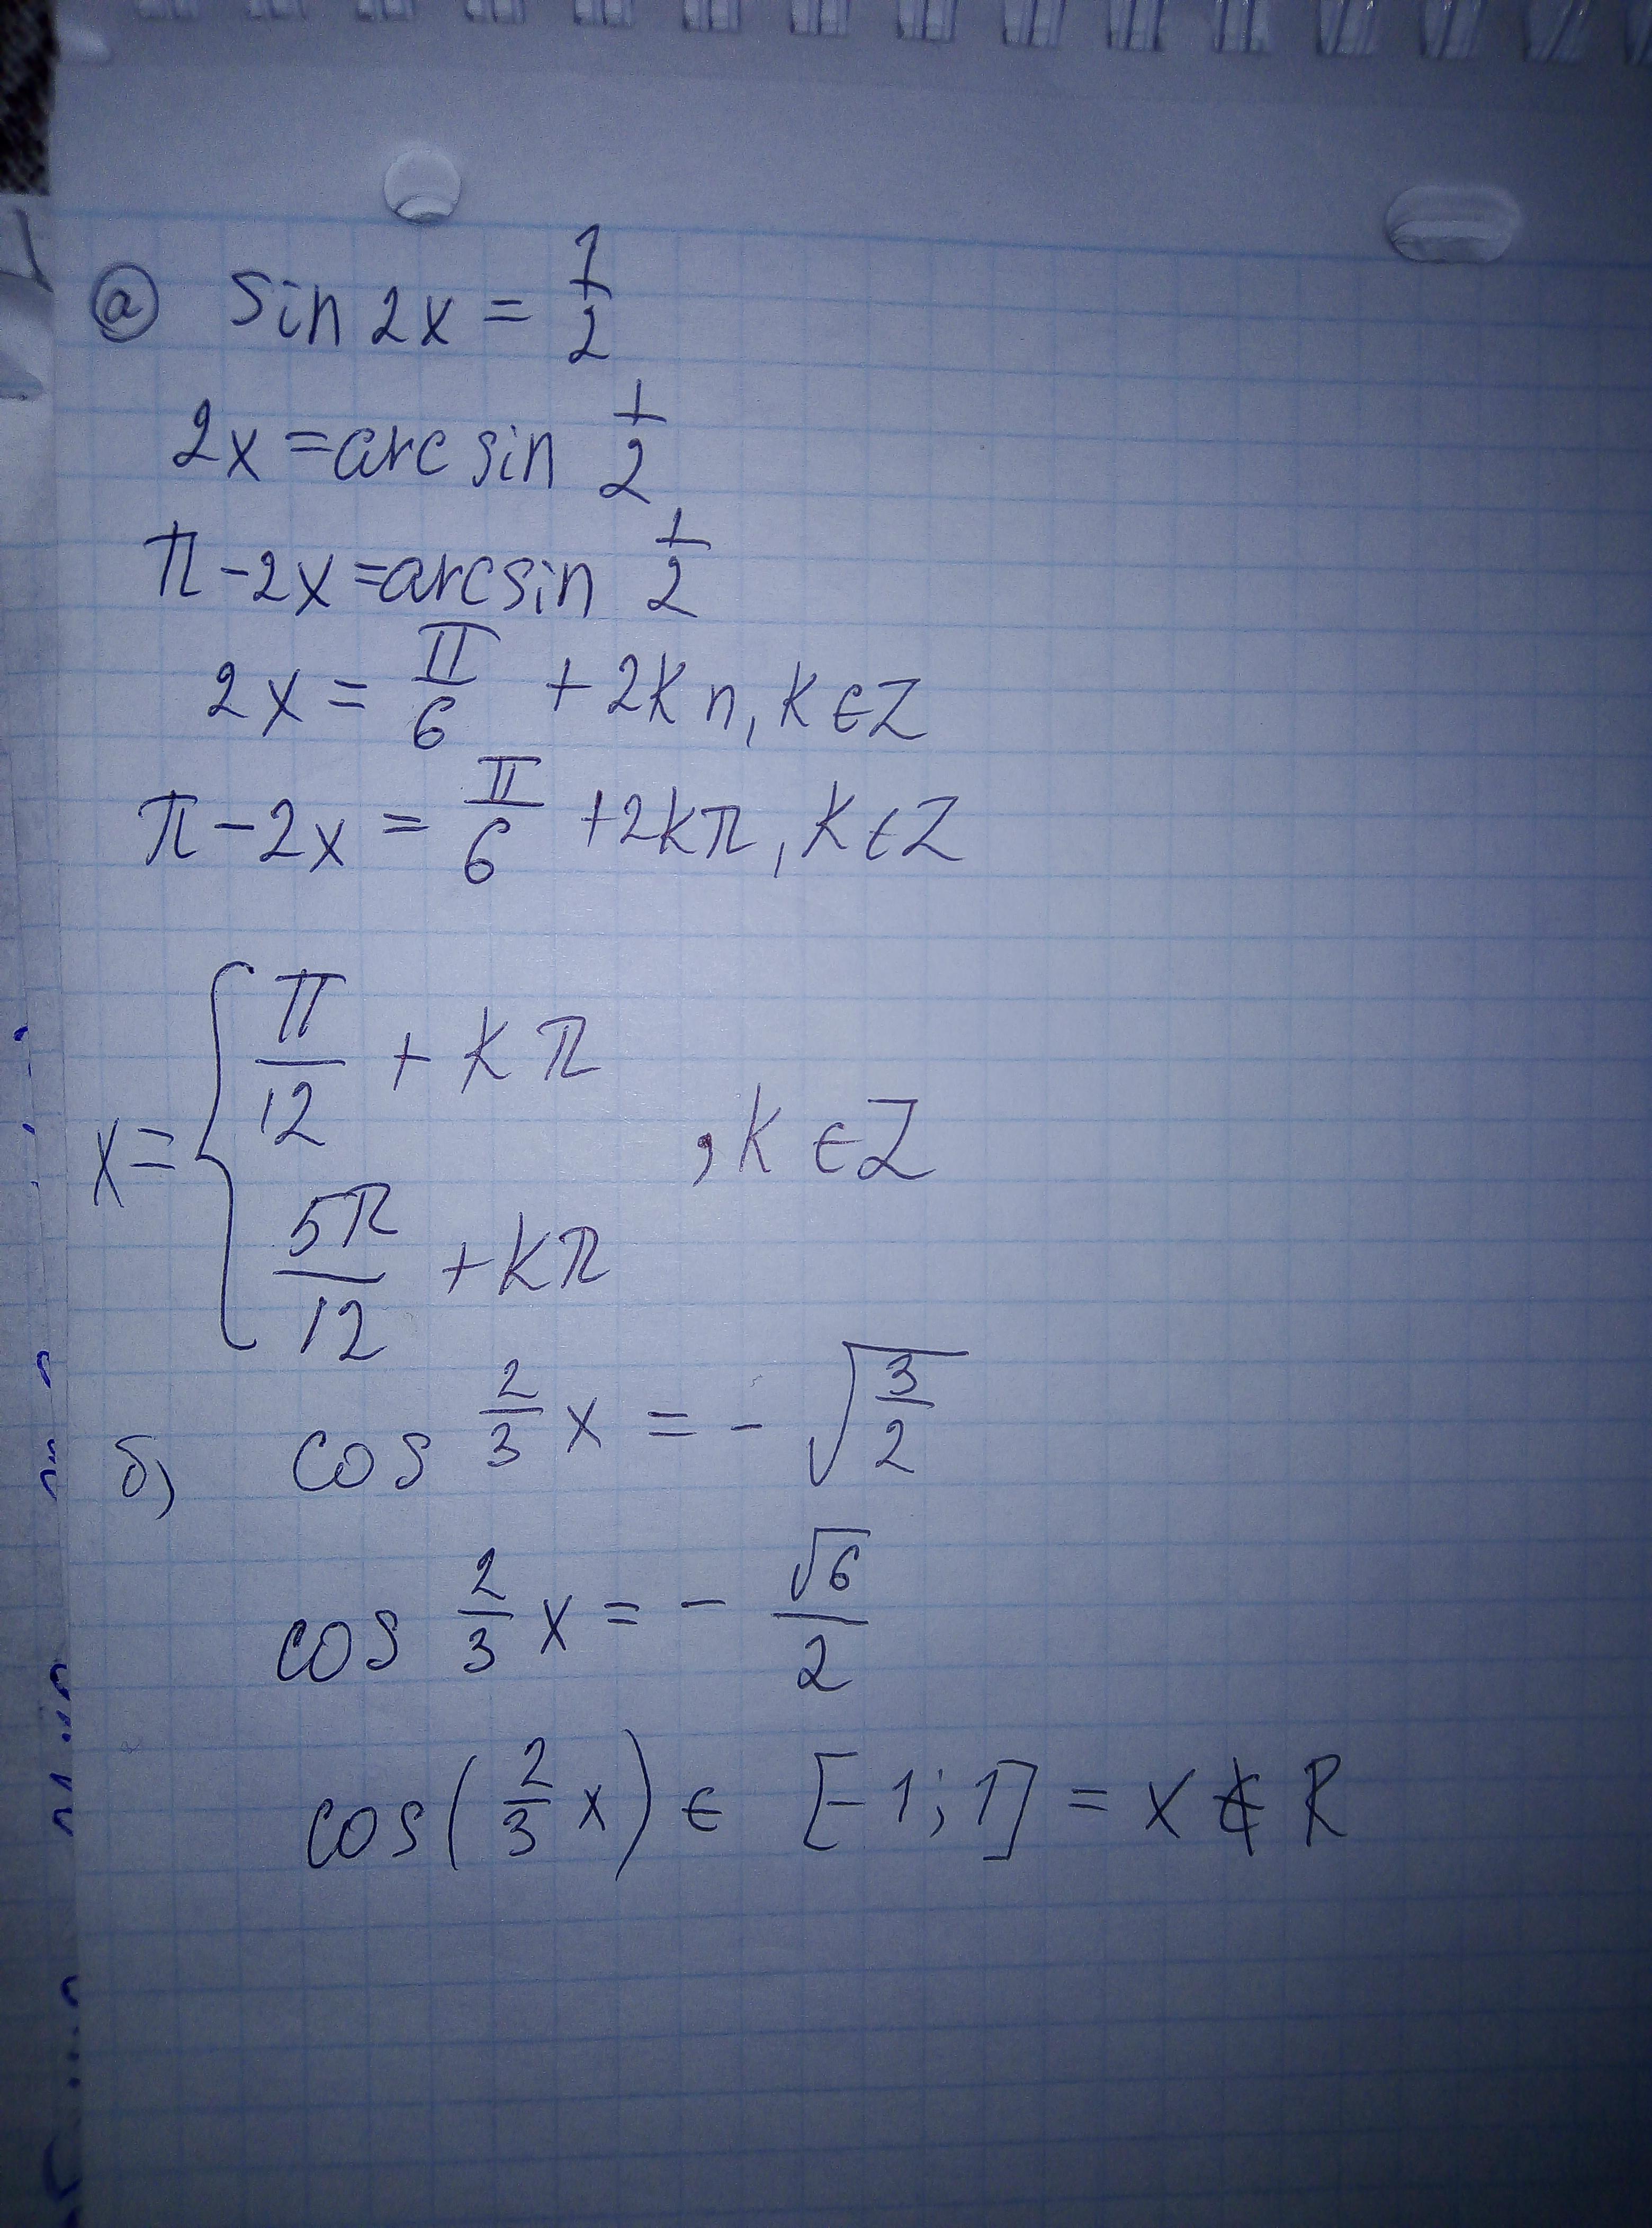 а sin 2x = 1/2
2x = arcsin 1/2
π - 2x = arcsin 1/2
2x = π/6 + 2kn, k ∈ Z
π - 2x = π/6 + 2kπ, k ∈ Z
x = { π/12 + kπ
5π/12 + kπ , k ∈ Z
б) cos 2/3 x = - √(3/2)
cos 2/3 x = - √6/2
cos(2/3 x) ∈ [-1; 1] = x ∉ R